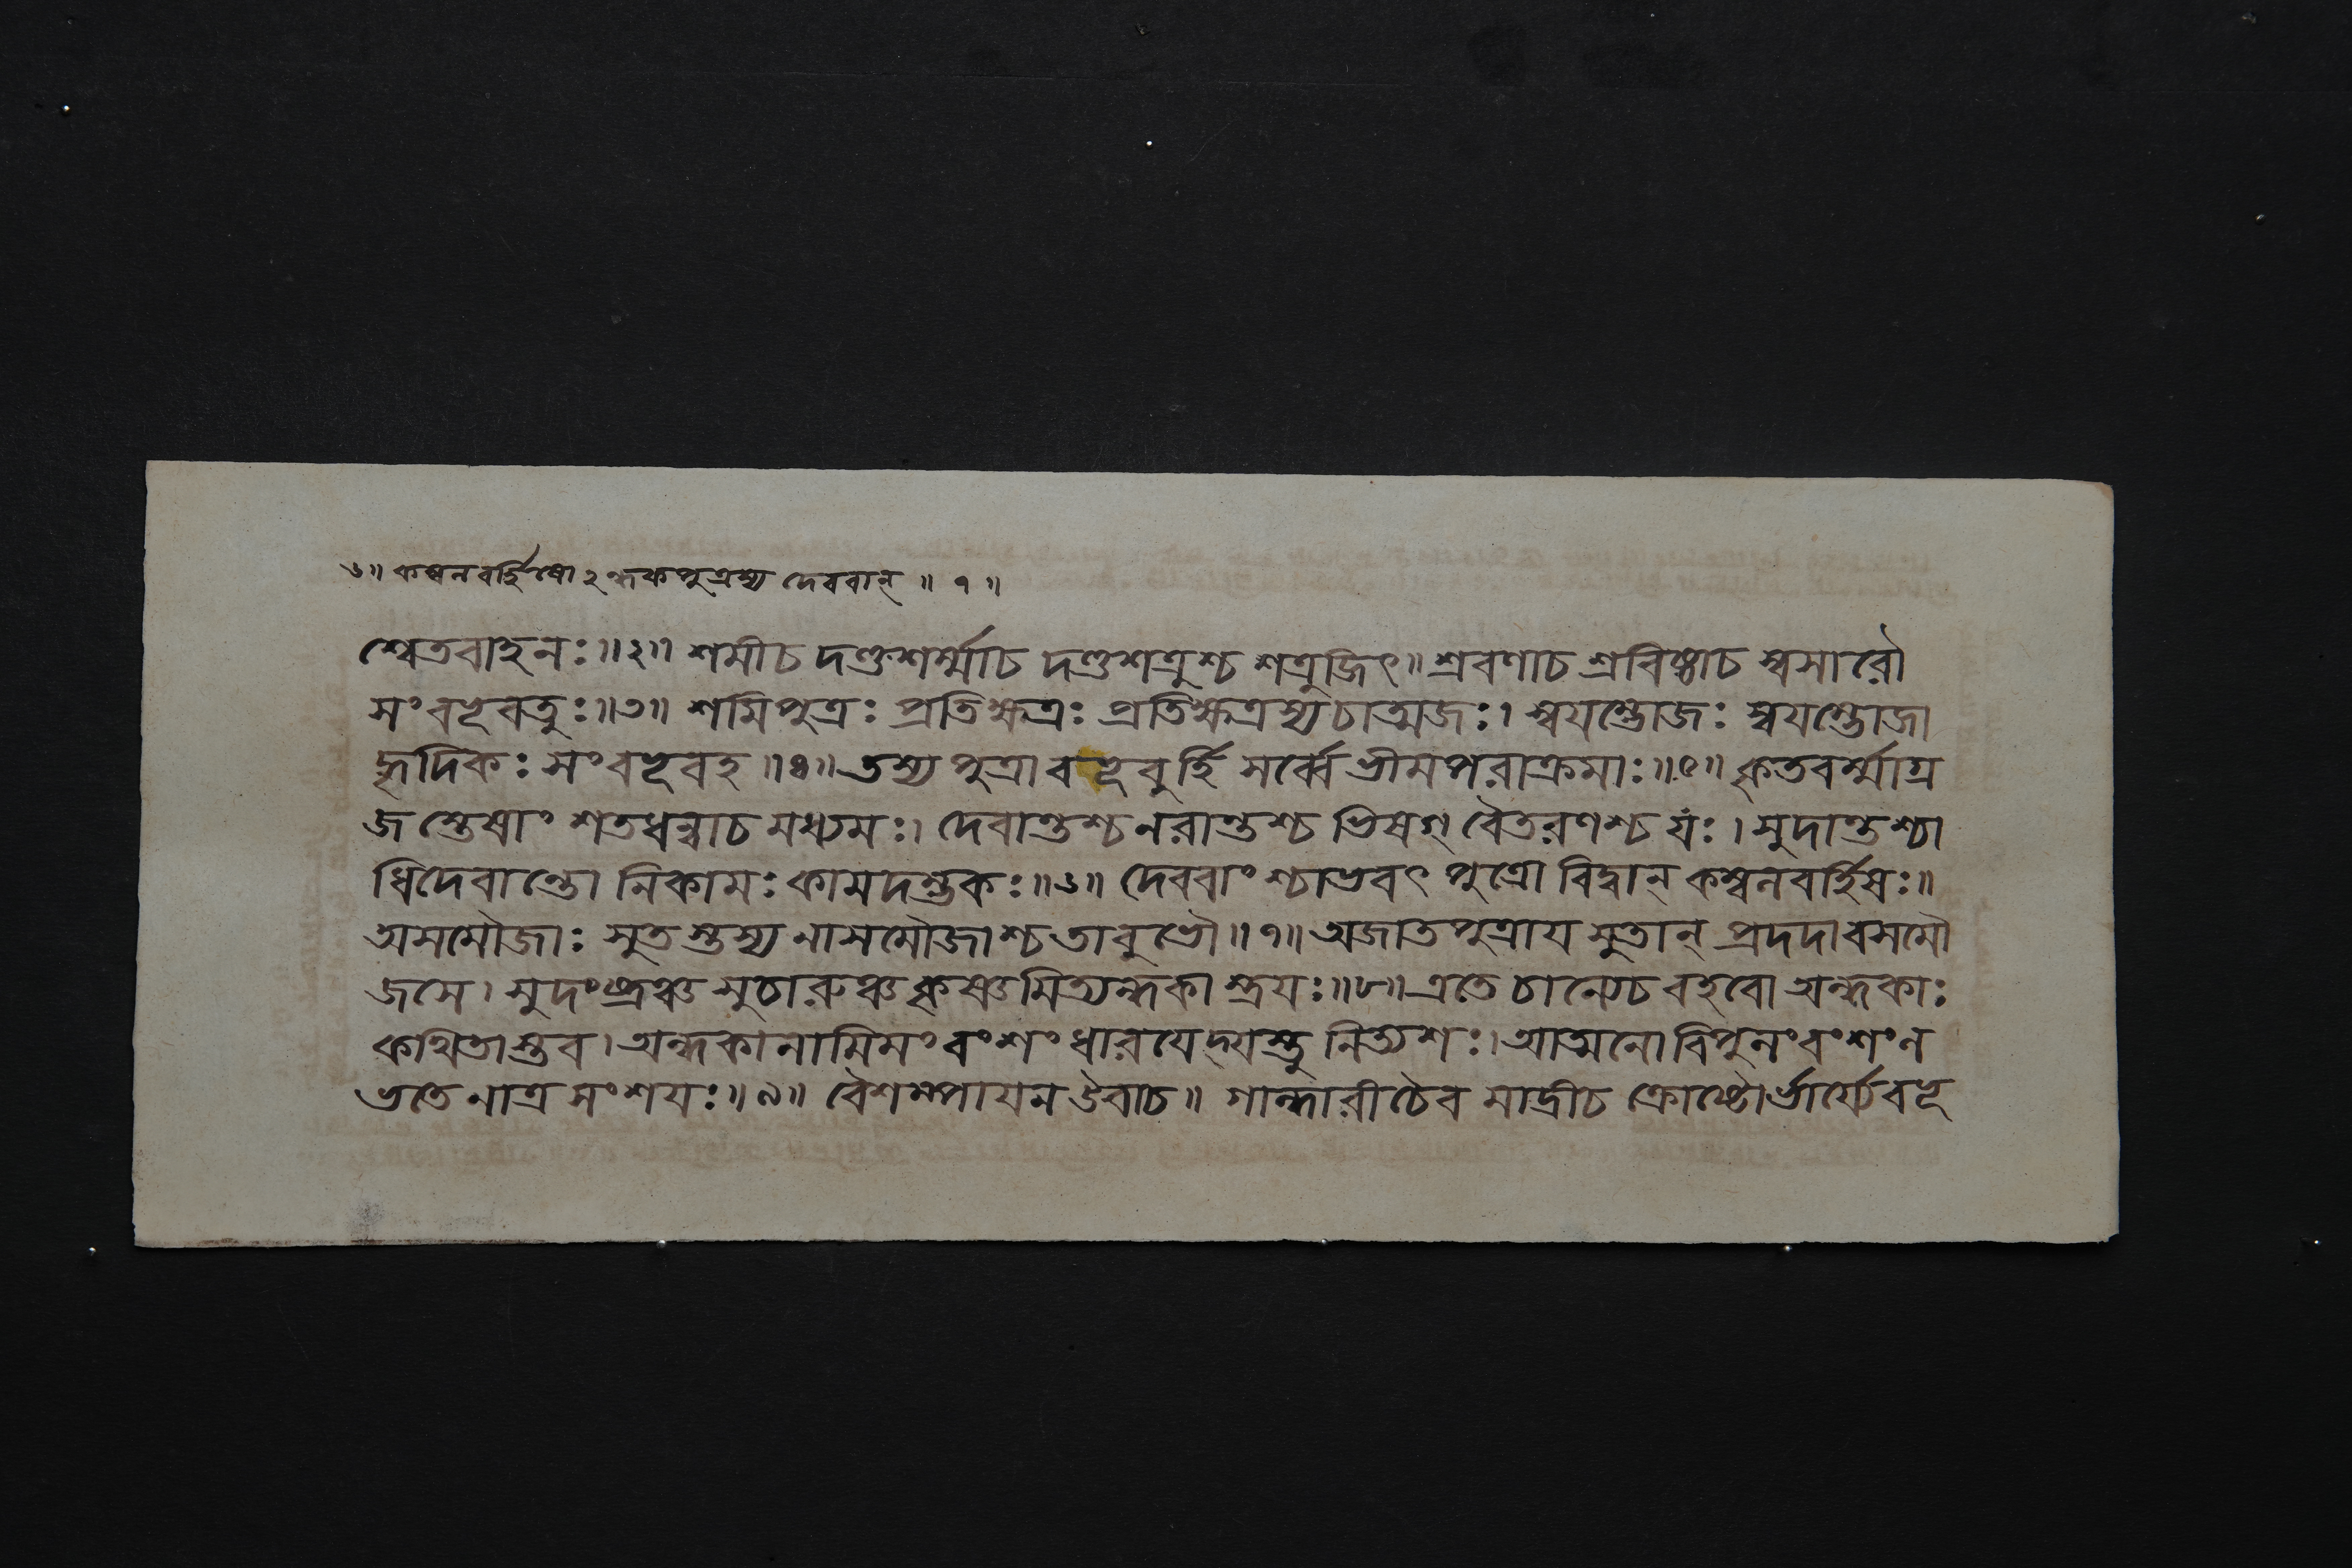 ৬॥ কম্বলবর্হিষোঽন্ধকপুত্রস্য দেববান্ ॥ ৭ ॥
শ্বেতবাহনঃ॥২॥ শমীচ দণ্ডশর্ম্মাচ দণ্ডশত্রুশ্চ শত্রুজিৎ॥ শ্রবণাচ শ্রবিষ্ঠাচ স্বসারৌ
সংবভূবতুঃ॥৩॥ শমিপুত্রঃ প্রতিক্ষত্রঃ প্রতিক্ষত্রস্যচাত্মজঃ। স্বয়ম্ভোজঃ স্বয়ম্ভোজা
হৃদিকঃ সংবভূবহ॥৪॥ তস্য পুত্রা বভূবুর্হি সর্ব্বে ভীমপরাক্রমাঃ॥৫॥ কৃতবর্ম্মাগ্র
জস্তেষাং শতধন্বাচ মধ্যমঃ। দেবান্তশ্চ নরান্তশ্চ ভিষগ্ বৈতরণশ্চ যঃ। সুদান্তশ্চা
ধিদেবান্তো নিকামঃ কামদন্তকঃ॥৬॥ দেববাংশ্চাভবৎ পুত্রো বিদ্বান্ কম্বলবর্হিষঃ॥
অসমৌজাঃ সুতস্তস্য নাসমৌজাশ্চ তাবুভৌ॥৭॥ অজাতপুত্রায় সুতান্ প্রদদাবসমৌ
জসে। সুদংষ্ট্রঞ্চ সুচারুঞ্চ কৃষ্ণমিত্যন্ধকাস্ত্রয়ঃ॥৮॥ এতে চান্যেচ বহবো অন্ধকাঃ
কথিতাস্তব। অন্ধকানামিমং বংশং ধারয়েদ্যস্তু নিত্যশঃ। আত্মনো বিপুলং বংশং ল
ভতে নাত্র সংশয়ঃ॥৯॥ বৈশম্পায়ন উবাচ॥ গান্ধারীচৈব মাদ্রীচ ক্রোষ্টোর্ভার্য্যে বভূ